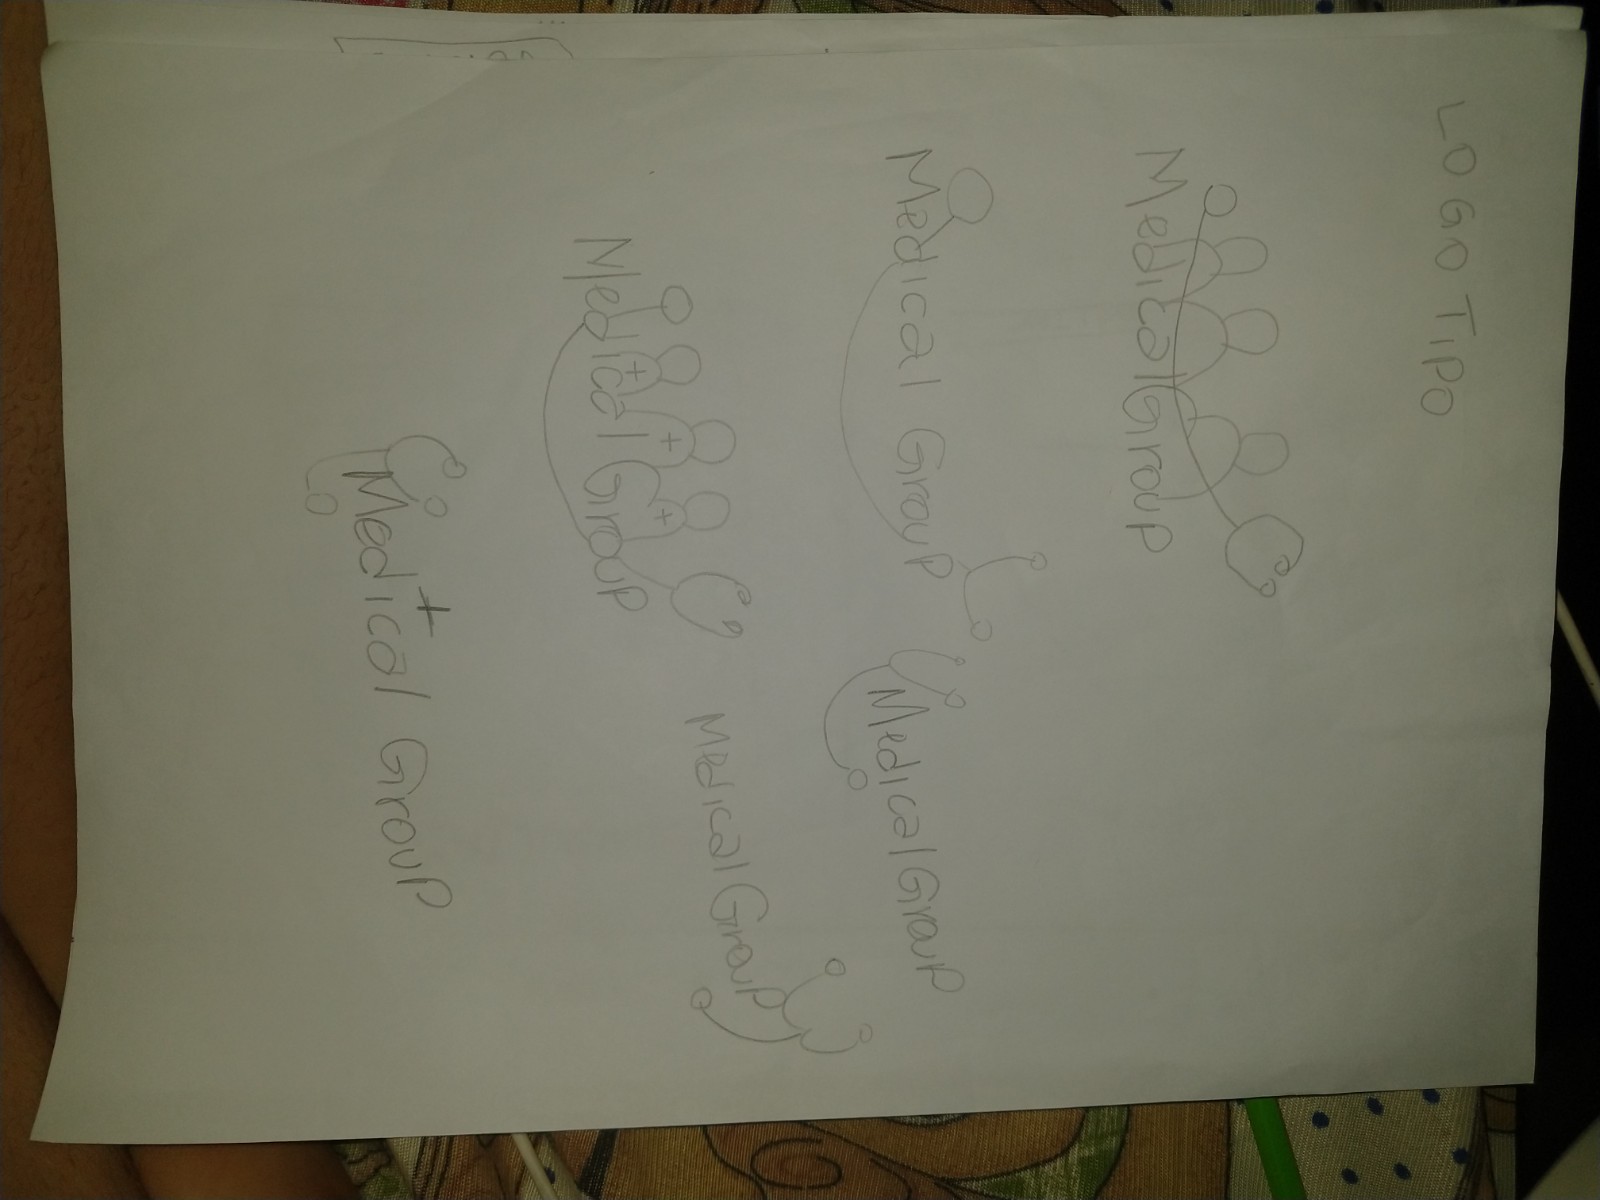 LOGO TIPO
Medical Group
Medical Group
Medical Group
Medical Group
Medical Group
Medical Group